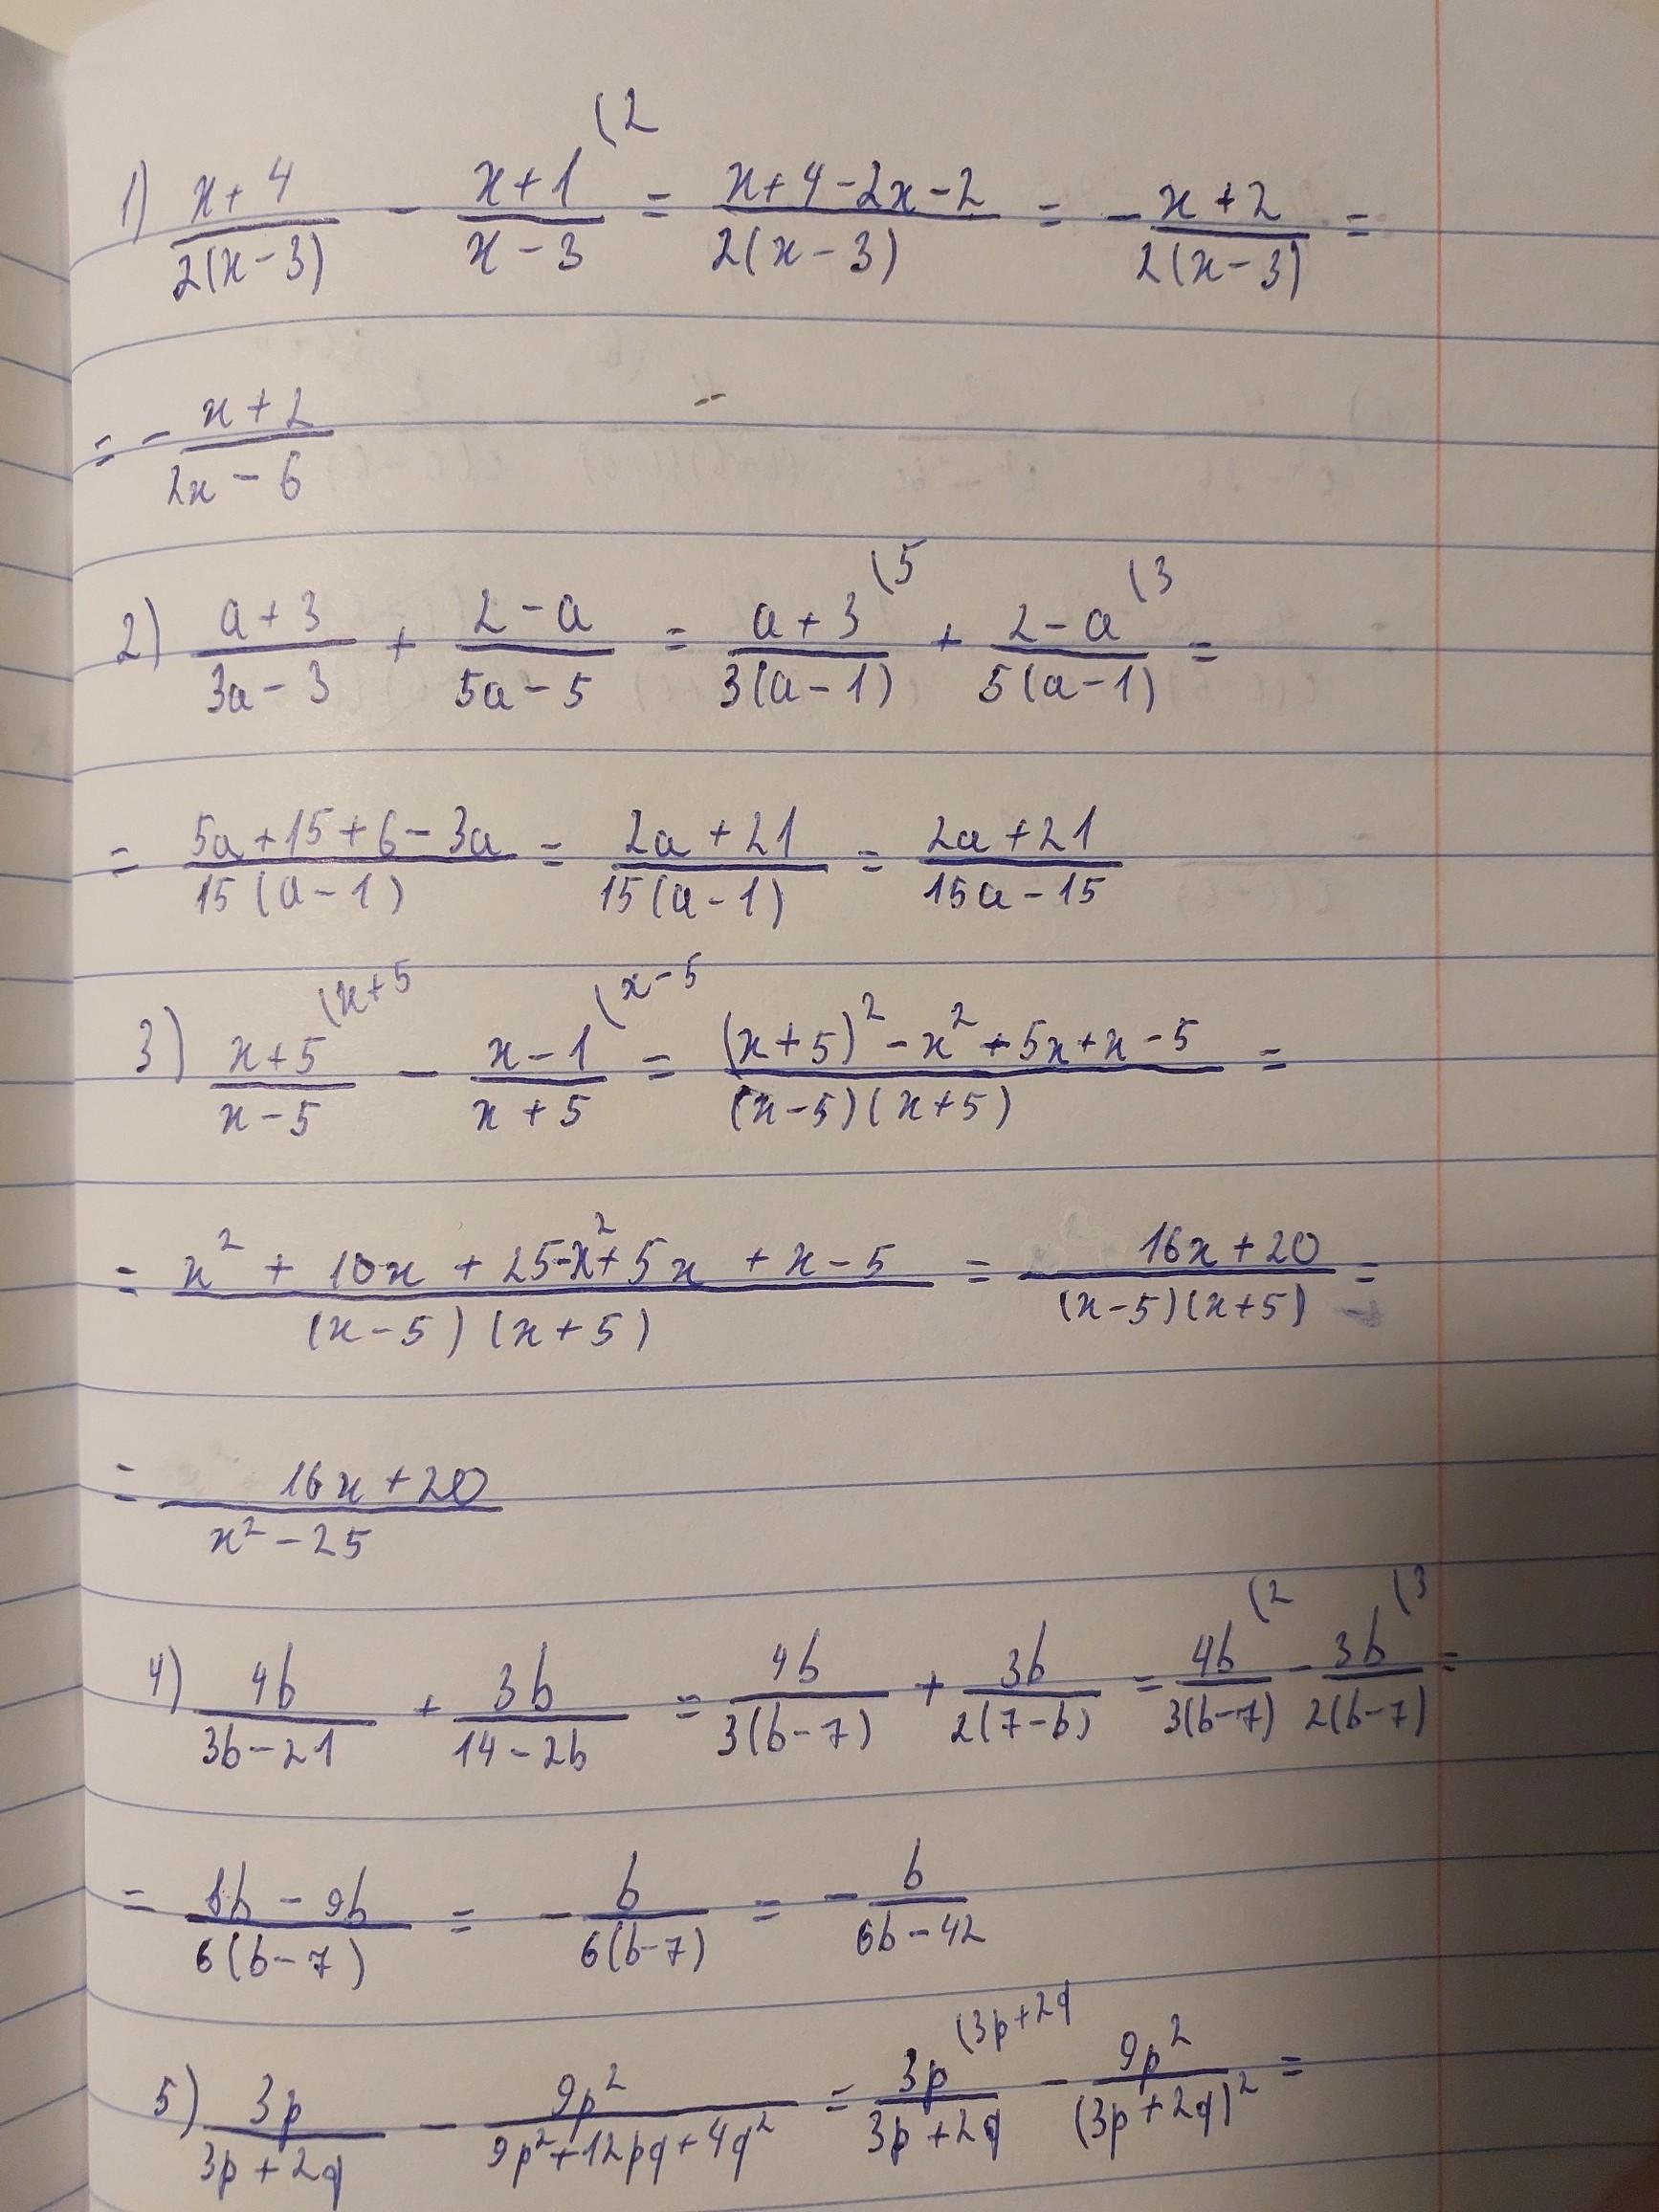 1) \frac{x+4}{2(x-3)} - \frac{x+1}{x-3}^{(2} = \frac{x+4-2x-2}{2(x-3)} = -\frac{x+2}{2(x-3)} =
= -\frac{x+2}{2x-6}
2) \frac{a+3}{3a-3} + \frac{2-a}{5a-5} = \frac{a+3}{3(a-1)}^{(5} + \frac{2-a}{5(a-1)}^{(3} =
= \frac{5a+15+6-3a}{15(a-1)} = \frac{2a+21}{15(a-1)} = \frac{2a+21}{15a-15}
3) \frac{x+5}{x-5}^{(x+5} - \frac{x-1}{x+5}^{(x-5} = \frac{(x+5)^2-x^2+5x+x-5}{(x-5)(x+5)} =
= \frac{x^2+10x+25-x^2+5x+x-5}{(x-5)(x+5)} = \frac{16x+20}{(x-5)(x+5)} =
= \frac{16x+20}{x^2-25}
4) \frac{4b}{3b-21} + \frac{3b}{14-2b} = \frac{4b}{3(b-7)} + \frac{3b}{2(7-b)} = \frac{4b}{3(b-7)}^{(2} - \frac{3b}{2(b-7)}^{(3} =
= \frac{8b-9b}{6(b-7)} = -\frac{b}{6(b-7)} = -\frac{b}{6b-42}
5) \frac{3p}{3p+2q} - \frac{9p^2}{9p^2+12pq+4q^2} = \frac{3p}{3p+2q}^{(3p+2q} - \frac{9p^2}{(3p+2q)^2} =